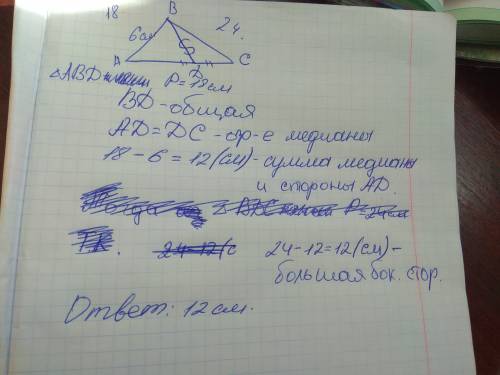 18 B 24.
6см
A D C
△ABD P=18см
BD - общая
AD = DC - св-е медианы
18 - 6 = 12 (см) - сумма медианы
и стороны AD.
24 - 12 = 12 (см) -
большая бок. стор.
Ответ: 12 см.